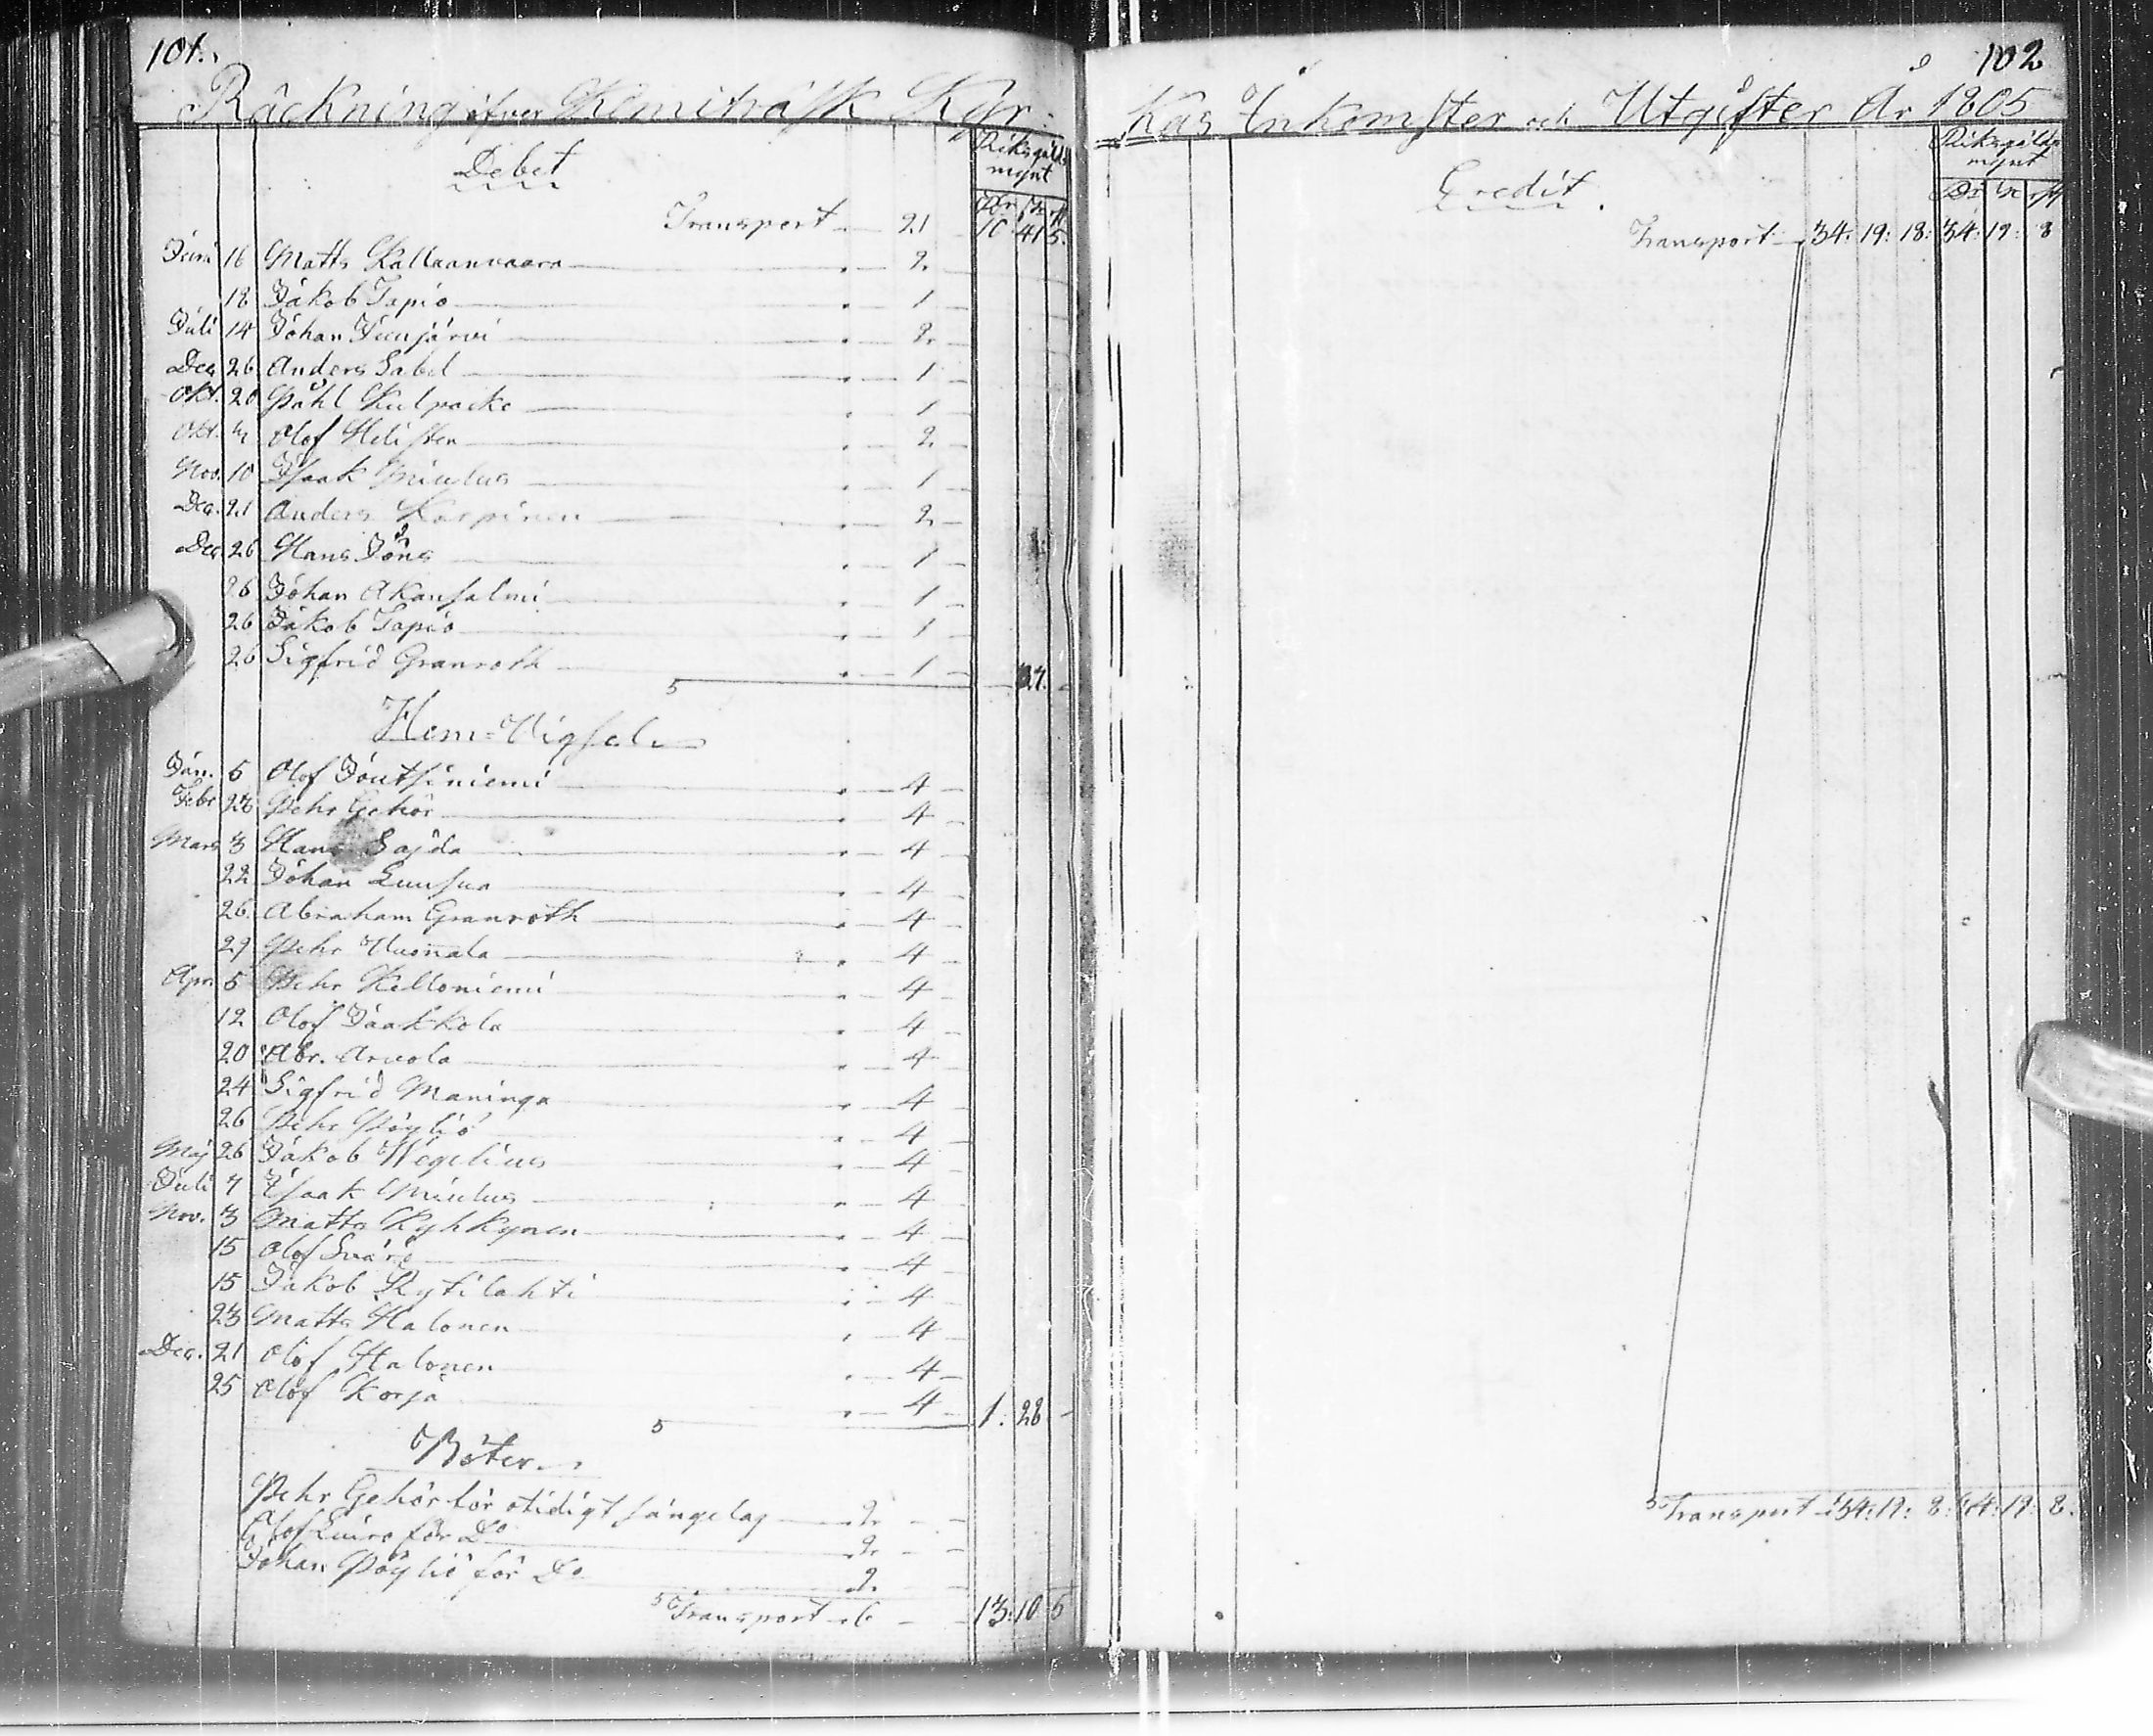 101.
Räckning öfver Kemiträsk Kyr:
Debet
Riksgälds
mynt
Transport 21 10 41 5.
Juni 16 Matts Kallaanvaara 2
18 Jakob Tapio 1
Juli 14 Johan Juujärvi 2
Dec 26 Anders Sabel 1
Okt. 20 Påhl Kulpacke 1
Okt. Olof Helisten 2
Nov. 10 Isaak Niulus 1
Dec. 21 Anders Karpinen 2
Dec 26 Hans Jöns 1
26 Johan Akansalmi 1
26 Jakob Tapio 1
26 Sigfrid Granroth 1
Hem-Vigsel
Jan. 6 Olof Joutsiniemi 4
Febr Pehr Gehör 4
Mars 3 Hans Sajda 4
22 Johan Luusua 4
26 Abraham Granroth 4
29 Pehr Vuonala 4
Apr. 5 Pehr Kelloniemi 4
12 Olof Jaakkola 4
20 Abr. Arvola 4
24 Sigfrid Maninga 4
26 Pehr Pöyliö 4
Maj 26 Jakob Wegelius 4
Juli 7 Isaak Niulus 4
Nov. 3 Matts Kyhkynen 4
15 Olof 4
15 Jakob Kytilahti 4
23 Matts Halonen 4
Dec. 21 Olof Halonen 4
25 Olof Korja 4 1. 28
Böter
Pehr Gehör för otidigt sängelag 2
Olof för Do 2
Johan Pöyliö för Do 2
Transport 6 13. 10 5
102
Kas Inkomster och Utgifter År 1805
Credit.
Riksgälds
mynt
Transport 34: 19: 18: 34: 19: 8
Transport 34: 19: 8: 34: 19: 8.